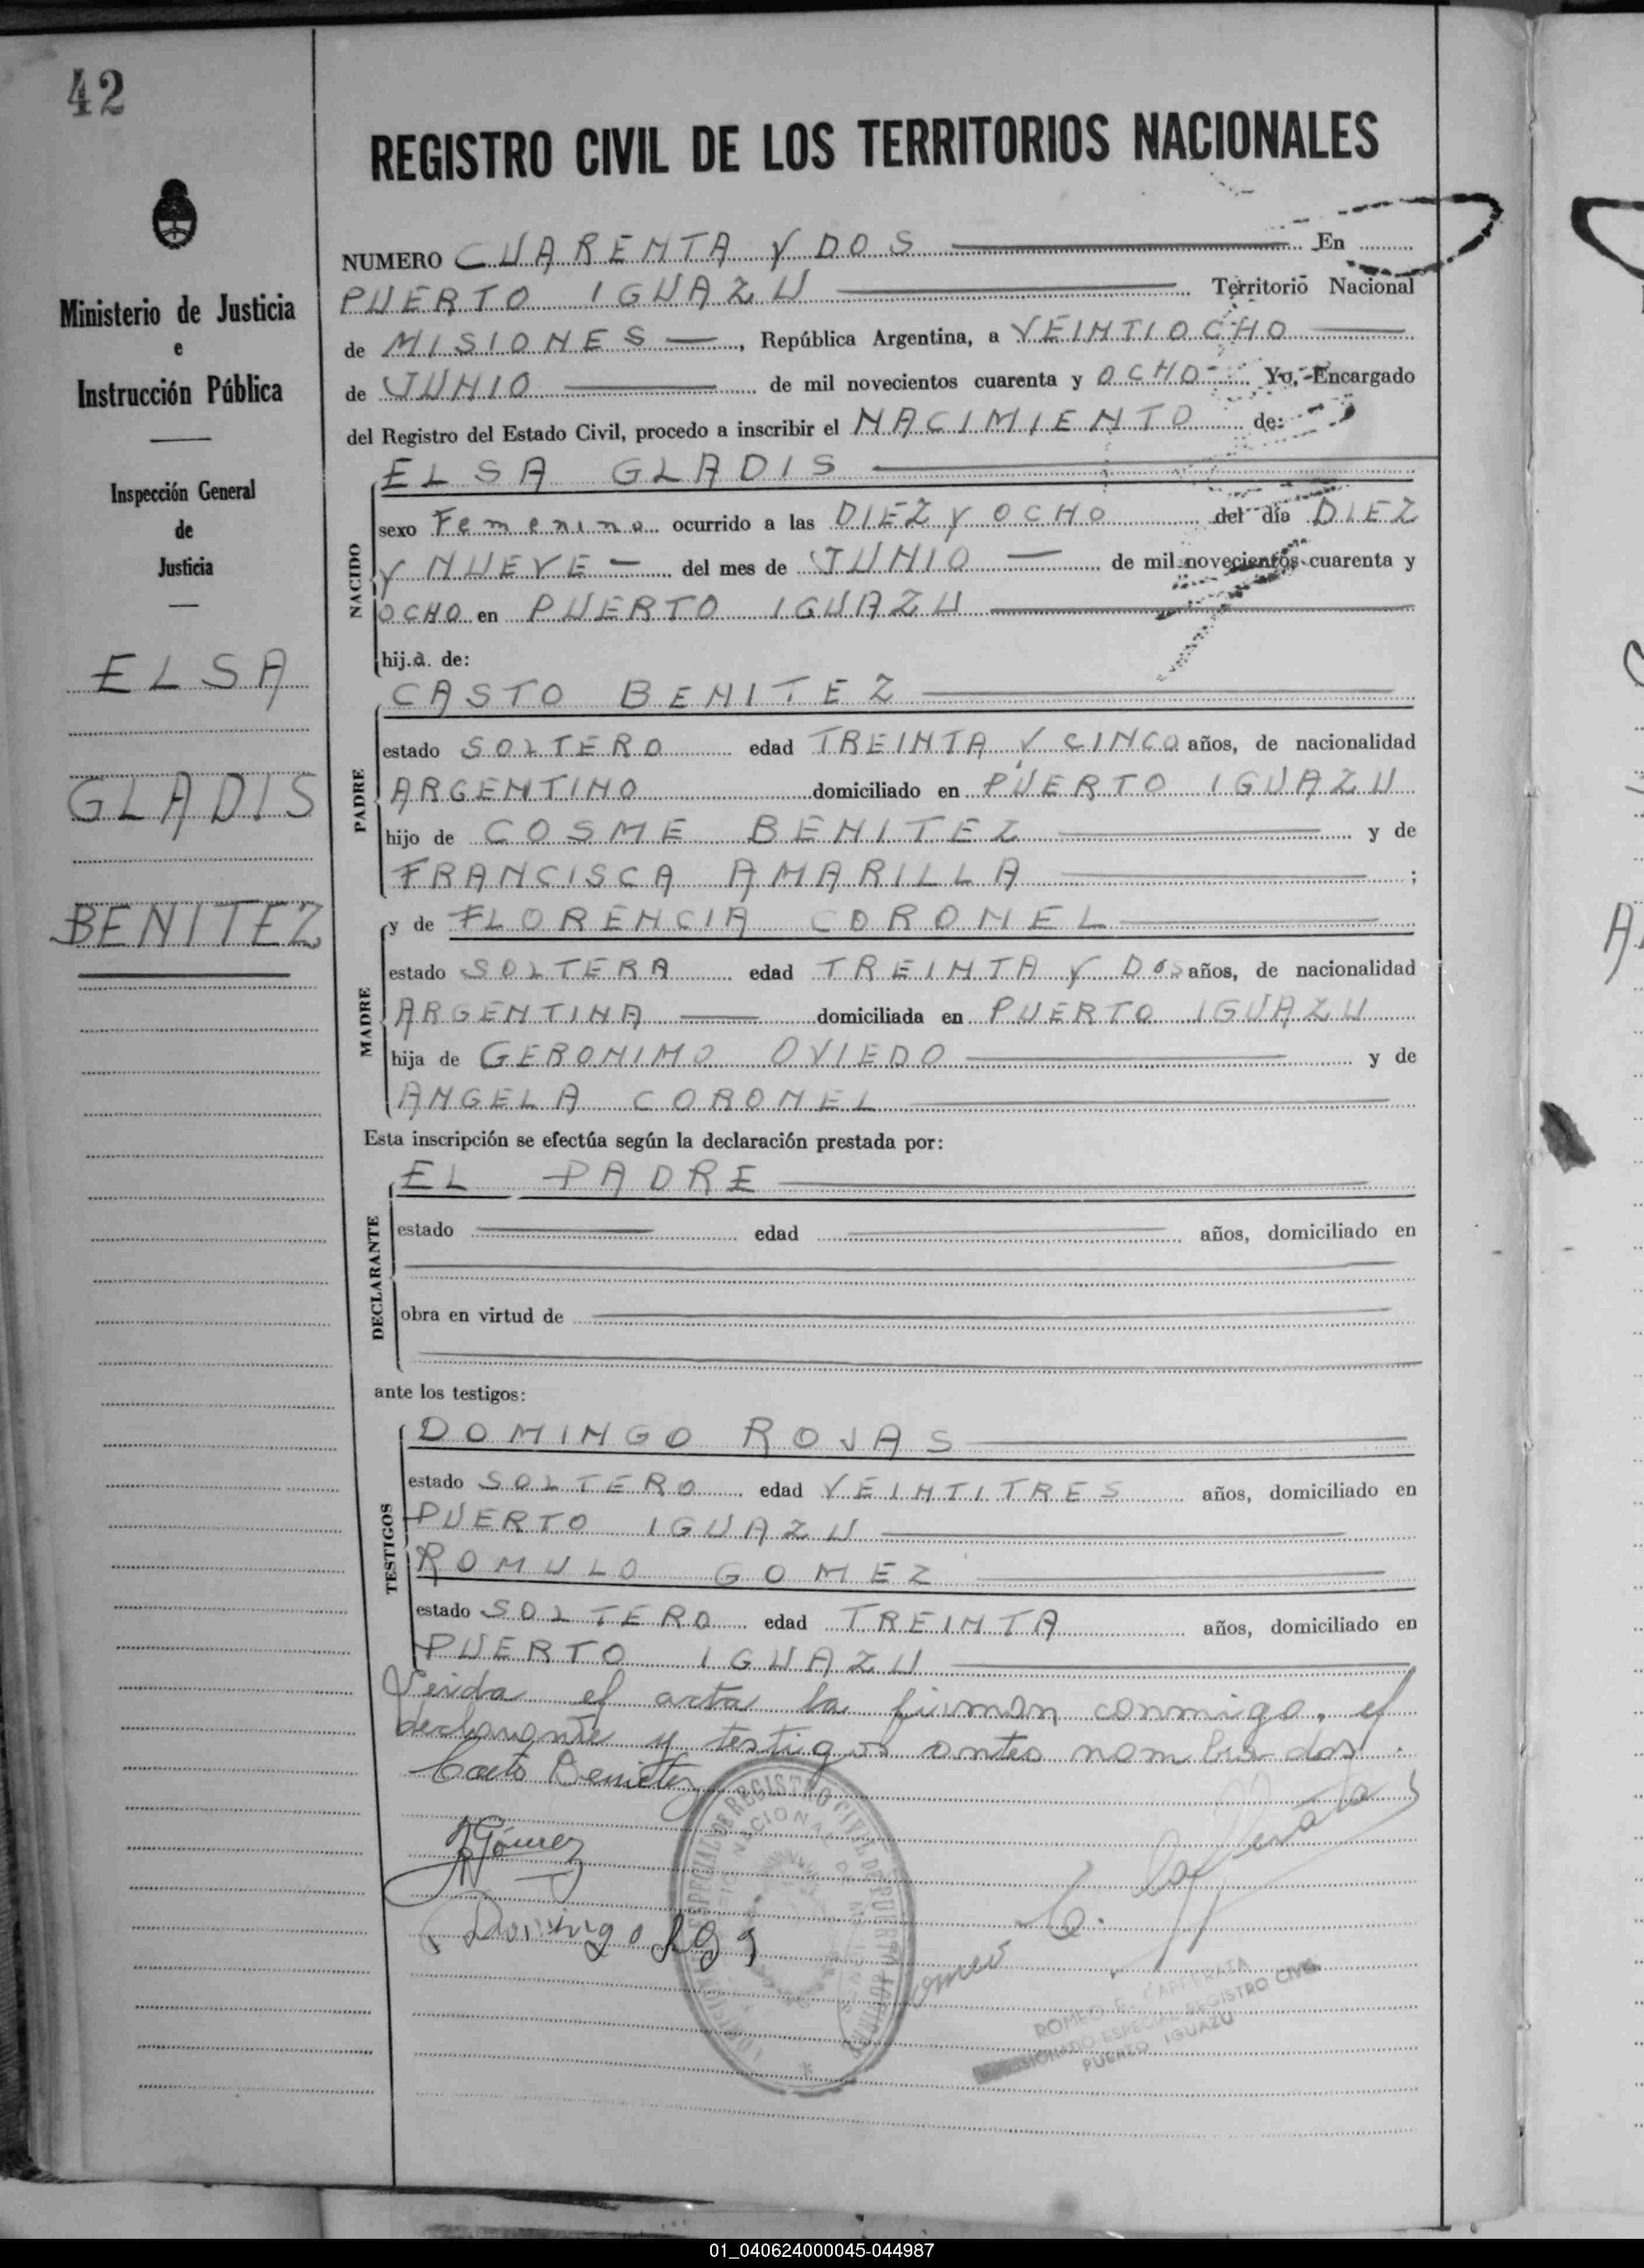 42
REGISTRO CIVIL DE LOS TERRITORIOS NACIONALES
Ministerio de Justicia
e
Instrucción Pública
Inspección General
de
Justicia
ELSA
GLADIS
BENITEZ
NUMERO CUARENTA Y DOS En
PUERTO IGUAZU Territorio Nacional
de MISIONES, República Argentina, a VEINTIOCHO
de JUNIO de mil novecientos cuarenta y OCHO Yo, Encargado
del Registro del Estado Civil, procedo a inscribir el NACIMIENTO de:
NACIDO
ELSA GLADIS
sexo Femenino ocurrido a las DIEZ Y OCHO del día DIEZ
Y NUEVE del mes de JUNIO de mil novecientos cuarenta y
OCHO en PUERTO IGUAZU
hija de:
PADRE
CASTO BENITEZ
estado SOLTERO edad TREINTA Y CINCO años, de nacionalidad
ARGENTINO domiciliado en PUERTO IGUAZU
hijo de COSME BENITEZ y de
FRANCISCA AMARILLA ;
MADRE
y de FLORENCIA CORONEL
estado SOLTERA edad TREINTA Y DOS años, de nacionalidad
ARGENTINA domiciliada en PUERTO IGUAZU
hija de GERONIMO OVIEDO y de
ANGELA CORONEL
Esta inscripción se efectúa según la declaración prestada por:
DECLARANTE
EL PADRE
estado edad años, domiciliado en
obra en virtud de
ante los testigos:
TESTIGOS
DOMINGO ROJAS
estado SOLTERO edad VEINTITRES años, domiciliado en
PUERTO IGUAZU
ROMULO GOMEZ
estado SOLTERO edad TREINTA años, domiciliado en
PUERTO IGUAZU
Leida el acta la firman conmigo, el
declarante y testigos antes nombrados.
Casto Benitez
RGómez
Domingo
ROMEO E. CAFFERATA
ESPECIAL REGISTRO CIVIL
PUERTO IGUAZU
01_040624000045-044987